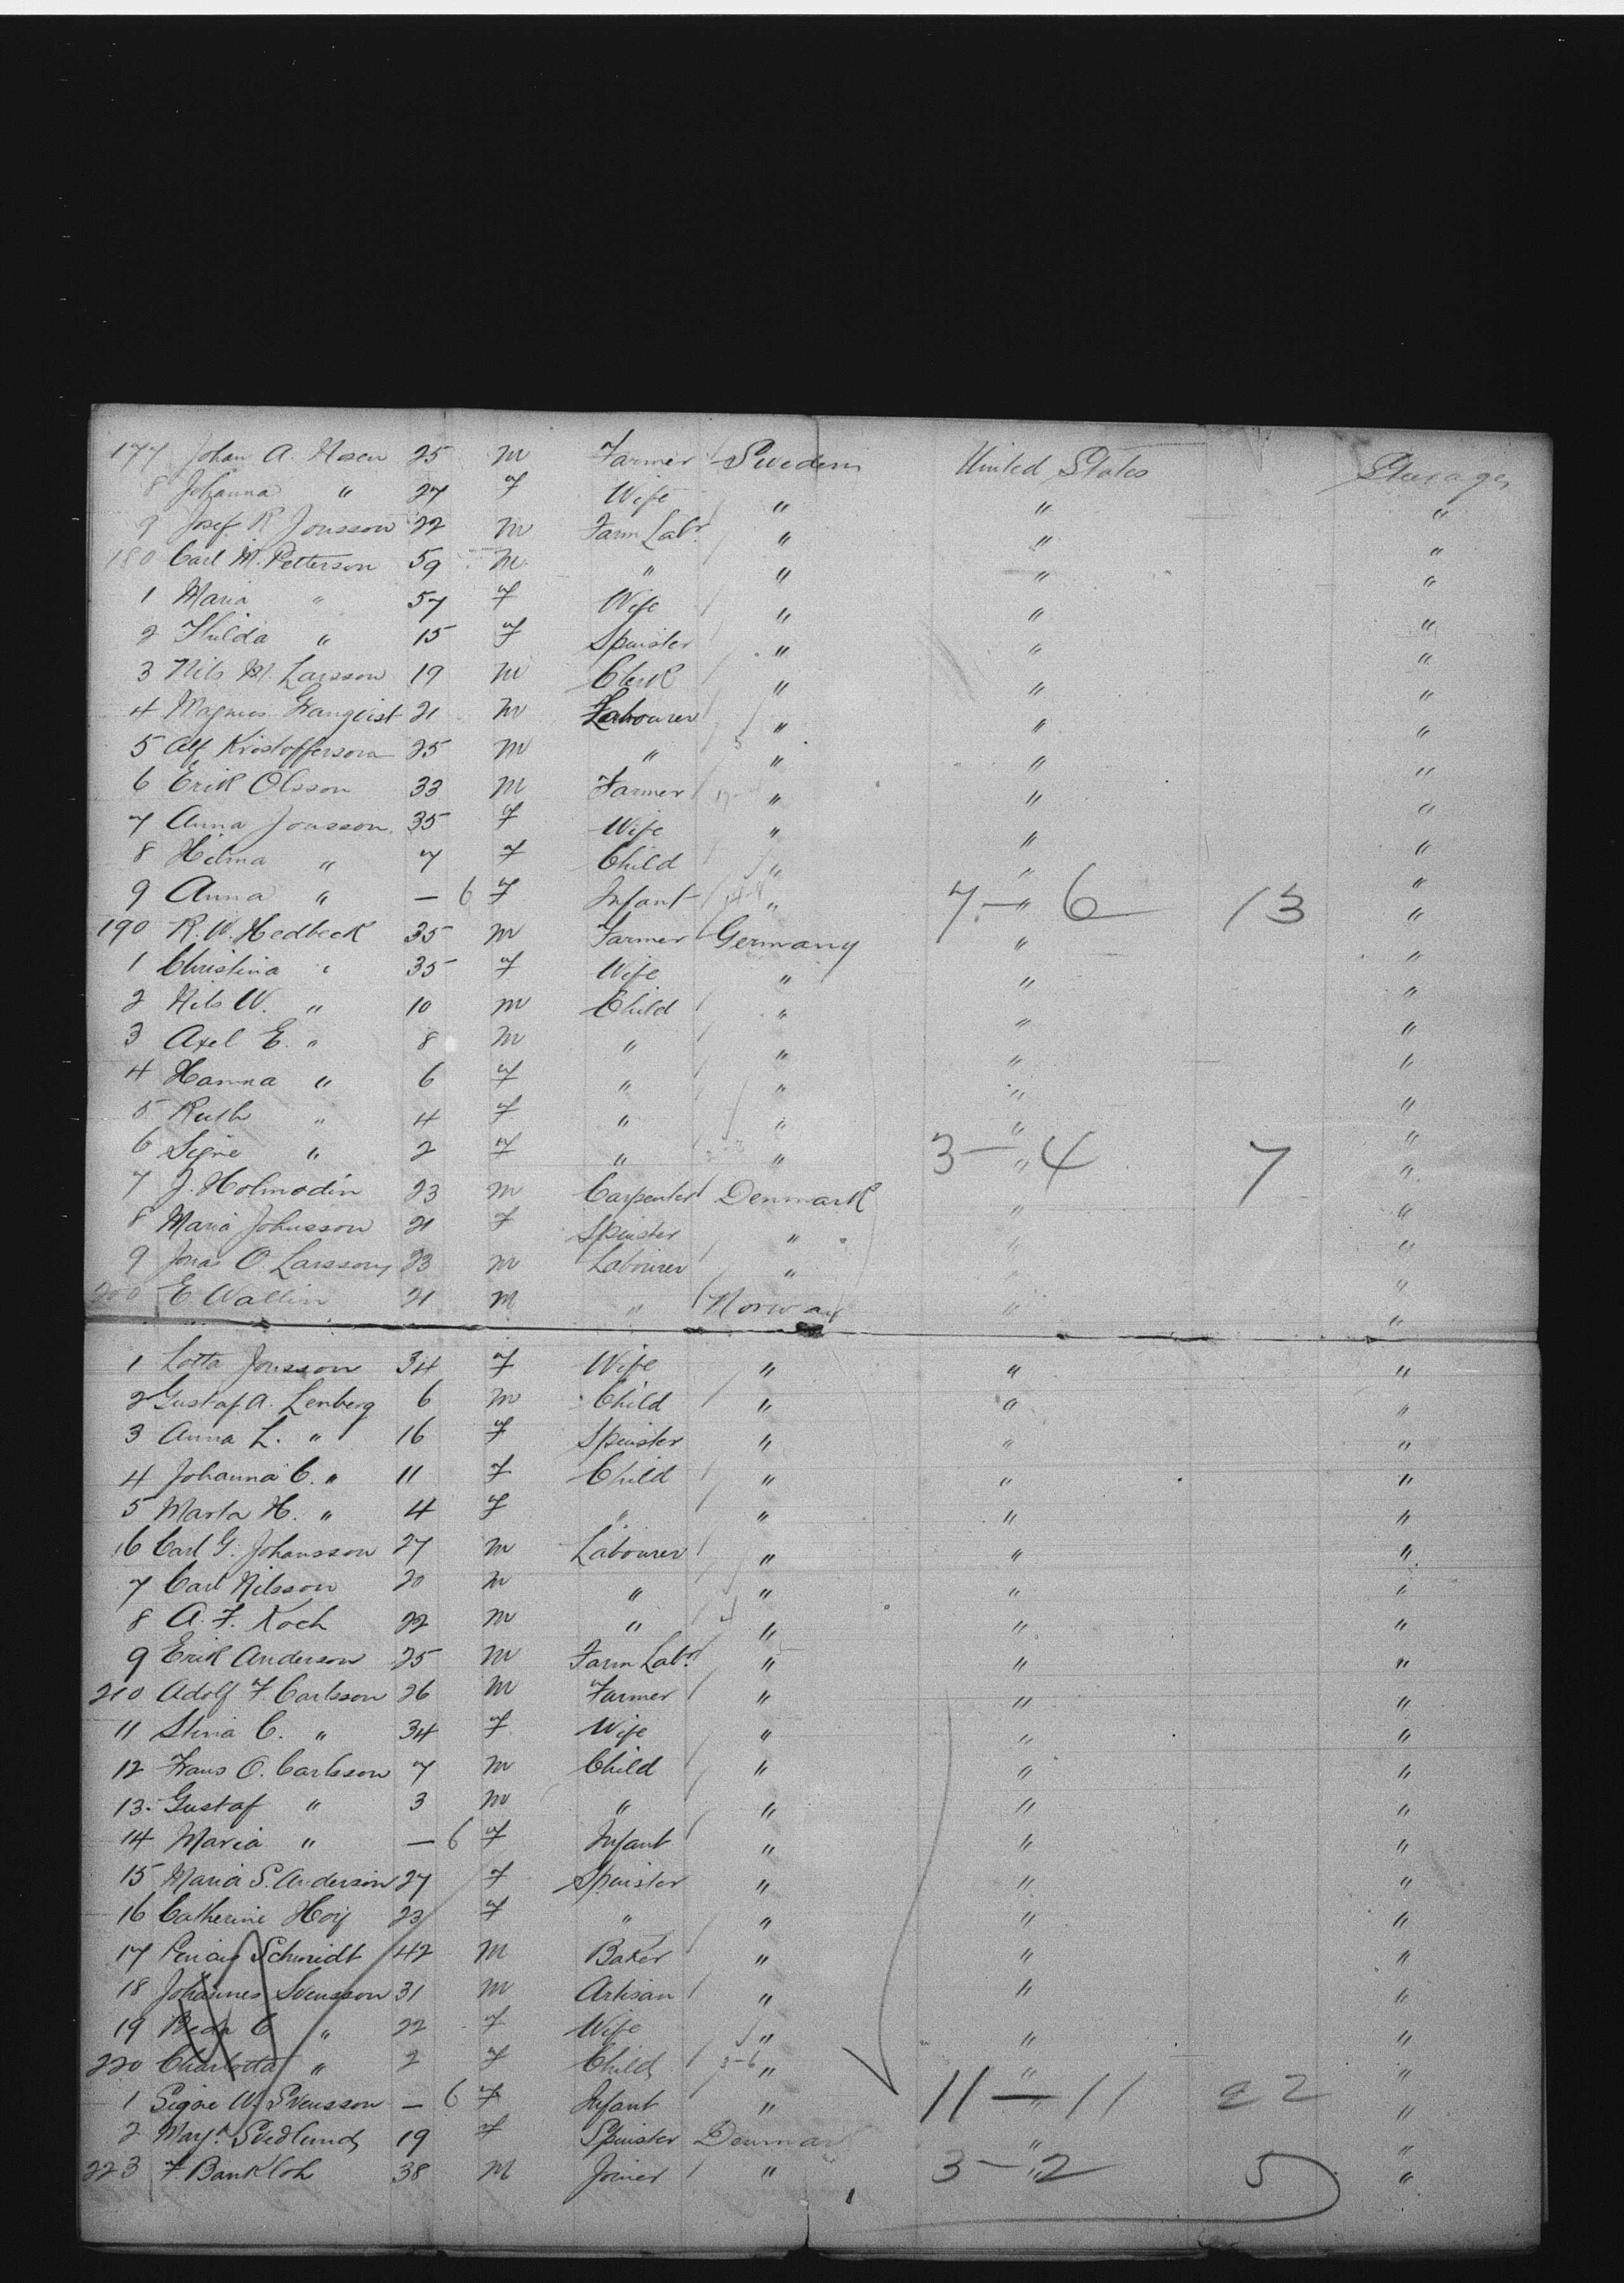 177 Johan A. Rosen 25 m Farmer Sweden United States Steerage
8 Johanna " 27 f Wife " " "
9 Josef R Jonsson 22 m Farm Labr. " " "
180 Carl M. Petterson 59 m " " " "
1 Maria " 57 f Wife " " "
2 Hulda " 15 f Spinster " " "
3 Nils M. Larsson 19 m Clerk " " "
4 Magnus Franqvist 21 m Labourer " " "
5 Alf Kristofferson 25 m " " " "
6 Erik Olsson 33 m Farmer " " "
7 Anna Jonsson 35 f Wife " " "
8 Hilma " 7 f Child " " "
9 Anna " — 6 f Infant " 7 — 6 13 "
190 R. W. Hedbeck 35 m Farmer Germany " "
1 Christina " 35 f Wife " " "
2 Nils W. " 10 m Child " " "
3 Axel E. " 8 m " " " "
4 Hanna " 6 f " " " "
5 Ruth " 4 f " " " "
6 Signe " 2 f " " 3 — 4 7 "
7 J. Holmodin 23 m Carpenter Denmark " "
8 Maria Johnsson 21 f Spinster " " "
9 Jonas O. Larsson 23 m Labourer " " "
200 E Wallin 21 m " Norway " "
1 Lotta Jonsson 34 f Wife " " "
2 Gustaf A. Lenberg 6 m Child " " "
3 Anna L. " 16 f Spinster " " "
4 Johanna C. " 11 f Child " " "
5 Marta H. " 4 f " " " "
6 Carl G. Johansson 27 m Labourer " " "
7 Carl Nilsson 20 m " " " "
8 A. F. Koch 22 m " " " "
9 Erik Anderson 25 m Farm Labr. " " "
210 Adolf F. Carlsson 26 m Farmer " " "
11 Stina C. " 34 f Wife " " "
12 Frans O. Carlsson 7 m Child " " "
13. Gustaf " 3 m " " " "
14 Maria " — 6 f Infant " " "
15 Maria S. Anderson 27 f Spinster " " "
16 Catherine Hoij 23 f " " " "
17 Schmidt 42 m Baker " " "
18 Johannes Svensson 31 m Artisan " " "
19 Beda C " 22 f Wife " " "
220 Charlotta " 2 f Child 5-6 " " "
1 Signe W. Svensson — 6 f Infant " 11 — 11 22 "
2 Margt. Svedlund 19 f Spinster Denmark " "
223 F. Bankloh 38 m Joiner " 3 — 2 5 "